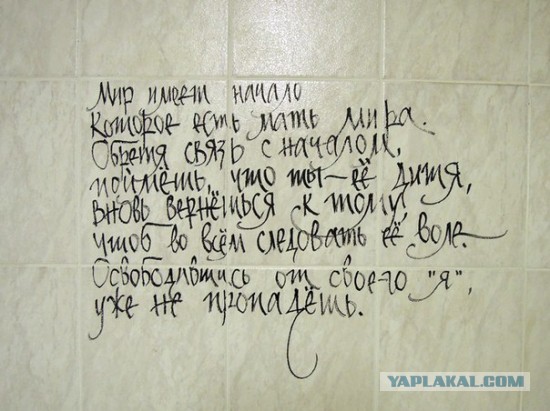 Мир имеет начало
Которое есть мать мира.
Обретя связь с началом,
поймёшь, что ты – её дитя,
вновь вернёшься к тому,
чтоб во всём следовать её воле.
Освободившись от своего "я",
уже не пропадёшь.
YAPLAKAL.COM